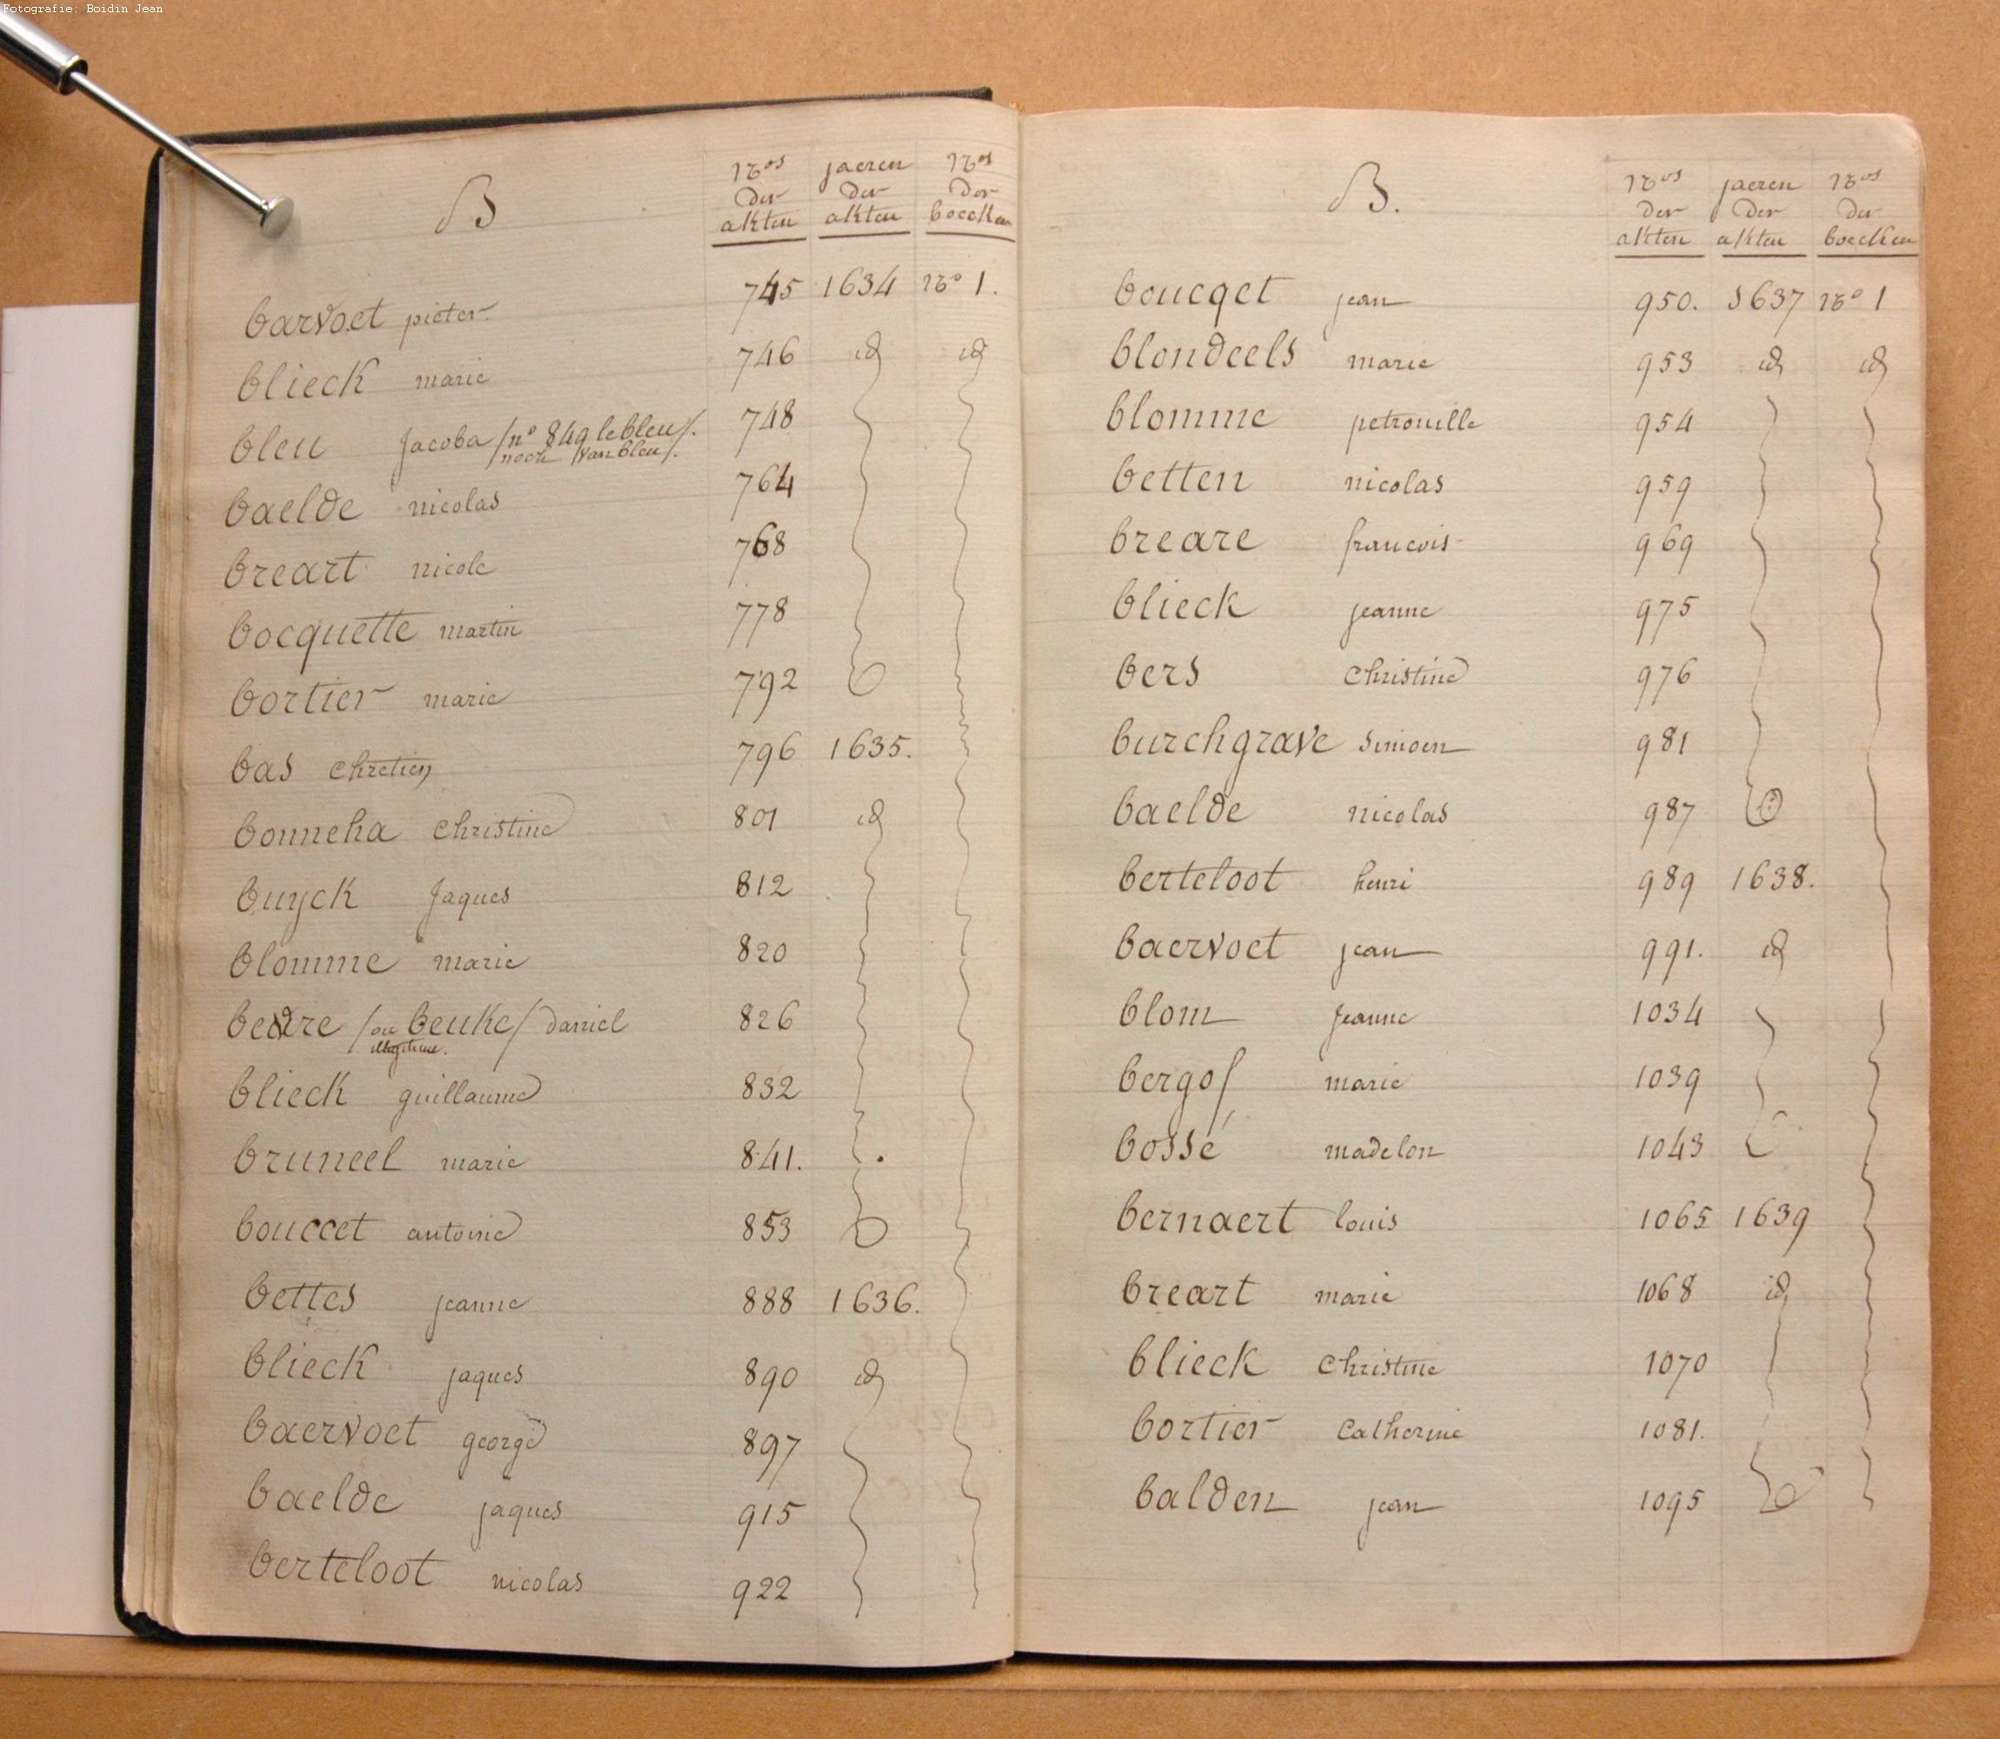 Fotografie: Boidin Jean
B
Nos der akten
jaeren der akten
Nos der boecken
barvoet pieter 745 1634 No 1.
blieck marie 746 id id
bleu Jacoba /no 849 lebleu/. 748
/noch /van bleu/.
baelde nicolas 764
breart nicole 768
bocquette martin 778
bortier marie 792
bas chretien 796 1635.
bonneha christine 801 id
buyck Jaques 812
blomme marie 820
/ou beuke/ daniel 826
illegitime.
blieck guillaume 832
bruneel marie 841.
bouccet antoine 853
bettes jeanne 888 1636.
blieck jaques 890 id
baervoet george 897
baelde jaques 915
berteloot nicolas 922
B.
Nos der akten
jaeren der akten
Nos der boecken
boucqet jean 950. 1637 No 1
blondeels marie 953 id id
blomme petronille 954
betten nicolas 959
breare francois 969
blieck jeanne 975
bers christine 976
burchgrave simoen 981
baelde nicolas 987
berteloot henri 989 1638.
baervoet jean 991. id
blom Jeanne 1034
bergof marie 1039
bossé madelon 1043
bernaert louis 1065 1639
breart marie 1068 id
blieck christine 1070
bortier catherine 1081.
balden jean 1095